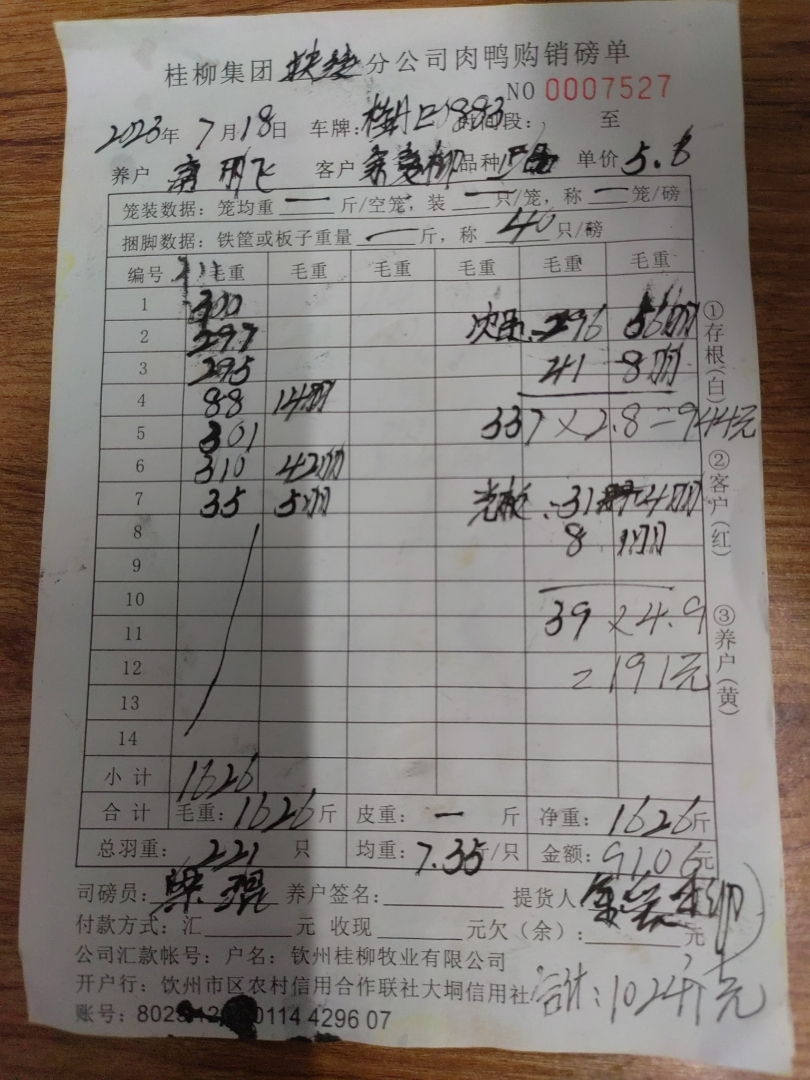 桂柳集团扶绥分公司肉鸭购销磅单
NO 0007527
2023年7月18日 车牌: 段: 至
养户 飞 客户 品种 单价5.6
笼装数据: 笼均重 一 斤/空笼, 装 一 只/笼, 称 一 笼/磅
捆脚数据: 铁筐或板子重量 一 斤, 称 40 只/磅
编号 毛重 毛重 毛重 毛重 毛重 毛重
1 300
2 297 次品: 296 56只
3 295 41 8只
4 88 14只
5 301 337×2.8=944元
6 310 42只
7 35 5只 光板: 31 4只
8 8 1只
9
10
11 39×4.9
12 =191元
13
14
小计 1626
合计 毛重: 1626斤 皮重: 一 斤 净重: 1626斤
总羽重: 221 只 均重: 7.35斤/只 金额: 9106元
司磅员: 梁琨 养户签名: 提货人
付款方式: 汇 元 收现 元欠(余): 元
公司汇款帐号: 户名: 钦州桂柳牧业有限公司
开户行: 钦州市区农村信用合作联社大垌信用社
合计: 10241元
账号: 0114 4296 07
①存根(白) ②客户(红) ③养户(黄)